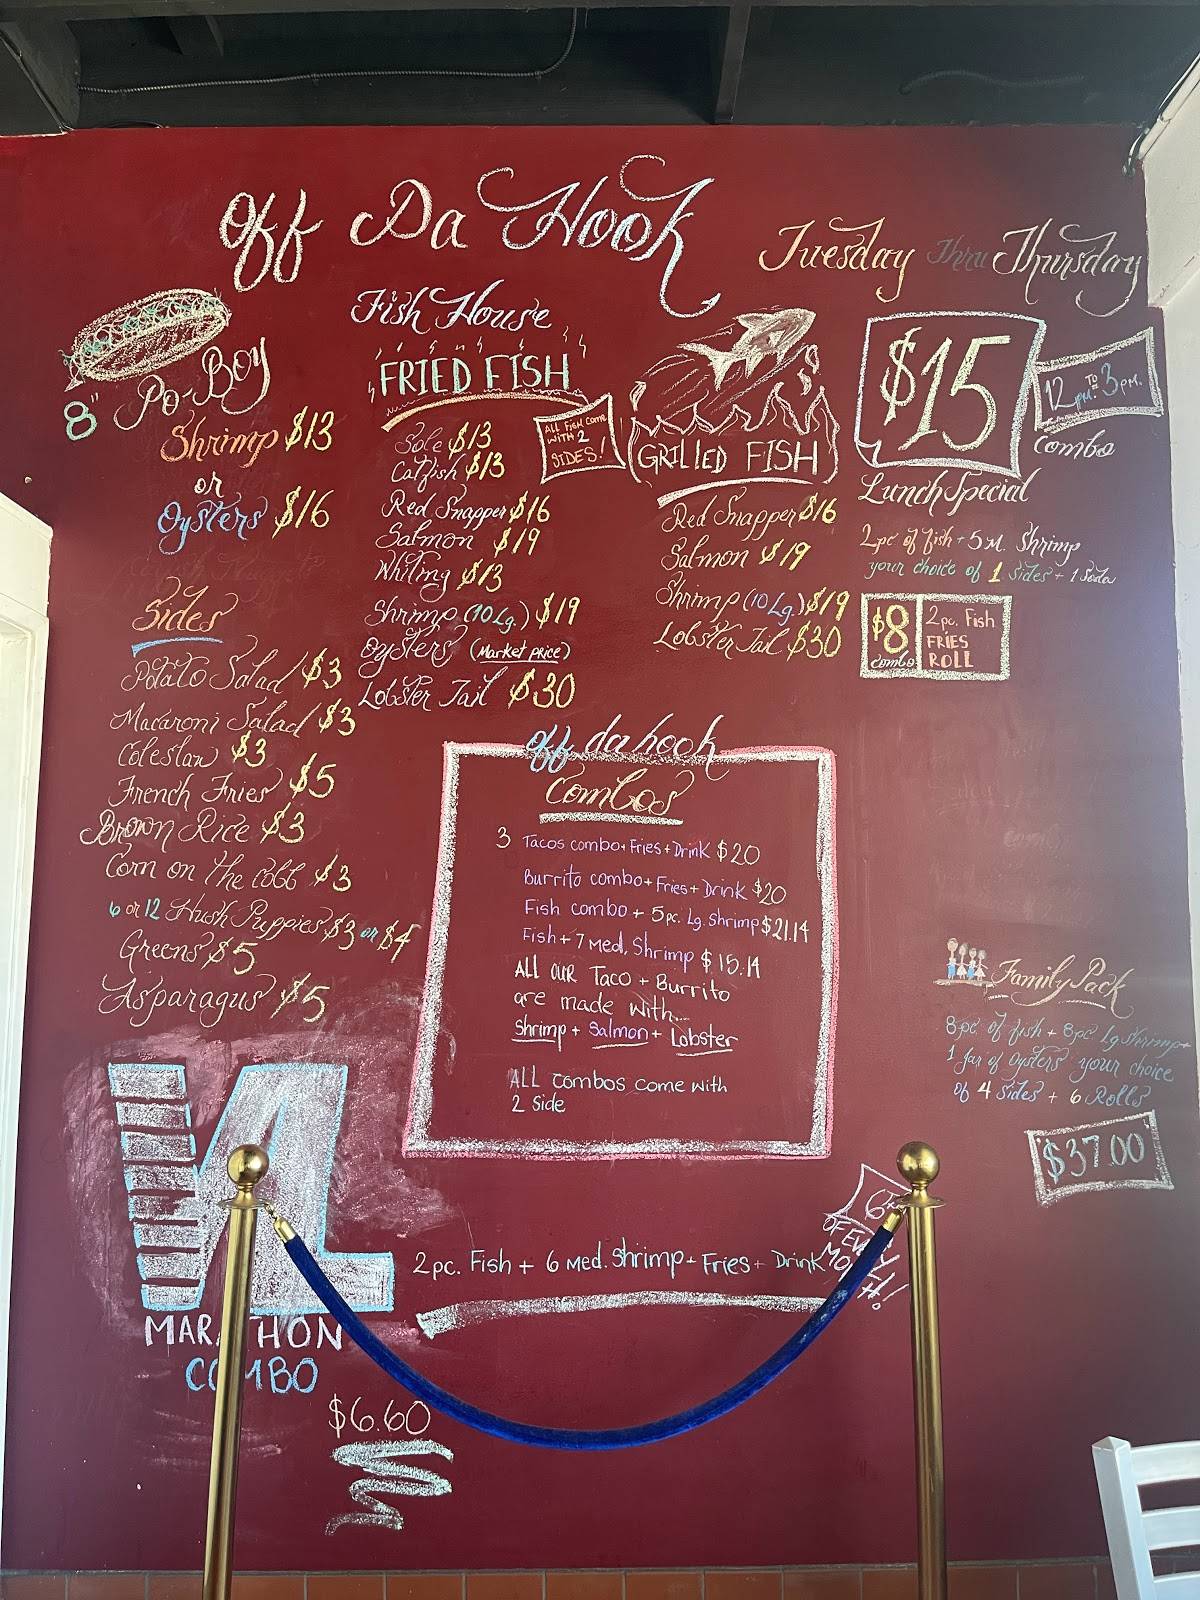 Off Da Hook
Fish House
Tuesday Thru Thursday
8" Po-Boy
Shrimp $13
or
Oysters $16
Sides
Potato Salad $3
Macaroni Salad $3
Coleslaw $3
French Fries $5
Brown Rice $3
Corn on the cobb $3
6 or 12 Hush Puppies $3 or $4
Greens $5
Asparagus $5
FRIED FISH
ALL Fish Come
WITH 2
SIDES!
Sole $13
Catfish $13
Red Snapper $16
Salmon $19
Whiting $13
Shrimp (10 Lg.) $19
Oysters (Market price)
Lobster Tail $30
GRILLED FISH
Red Snapper $16
Salmon $19
Shrimp (10 Lg.) $19
Lobster Tail $30
$15
12 pm. TO 3 pm.
Combo
Lunch Special
2pc of fish + 5 M. Shrimp
your choice of 1 Sides + 1 Soda
$8
combo
2 pc. Fish
FRIES
ROLL
off da hook
Combos
3 Tacos combo + Fries + Drink $20
Burrito combo + Fries + Drink $20
Fish combo + 5 pc. Lg. Shrimp $21.14
Fish + 7 Med. Shrimp $15.14
ALL OUR Taco + Burrito
are made with...
Shrimp + Salmon + Lobster
ALL combos come with
2 Side
Family Pack
8 pc of fish + 8 pc Lg Shrimp +
1 Jar of Oysters your choice
of 4 sides + 6 Rolls
$37.00
MARATHON
COMBO
2 pc. Fish + 6 Med. Shrimp + Fries + Drink
OF EVERY
MONTH!
$6.60